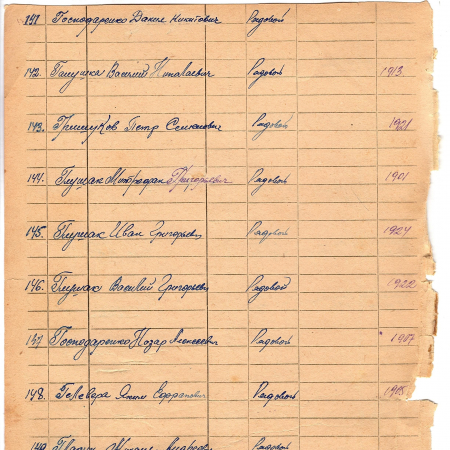 141. Господаренко Данил Никитович Рядовой
142. Галушка Василий Николаевич Рядовой 1913
143. Гришуков Петр Семенович Рядовой 1921
144. Глушак Митрофан Григорьевич Рядовой 1901
145. Глушак Иван Григорьевич Рядовой 1924
146. Глушак Василий Григорьевич Рядовой 1922
147. Господаренко Назар Алексеевич Рядовой 1907
148. Гелевера Яким Рядовой 1905
149. Рядовой